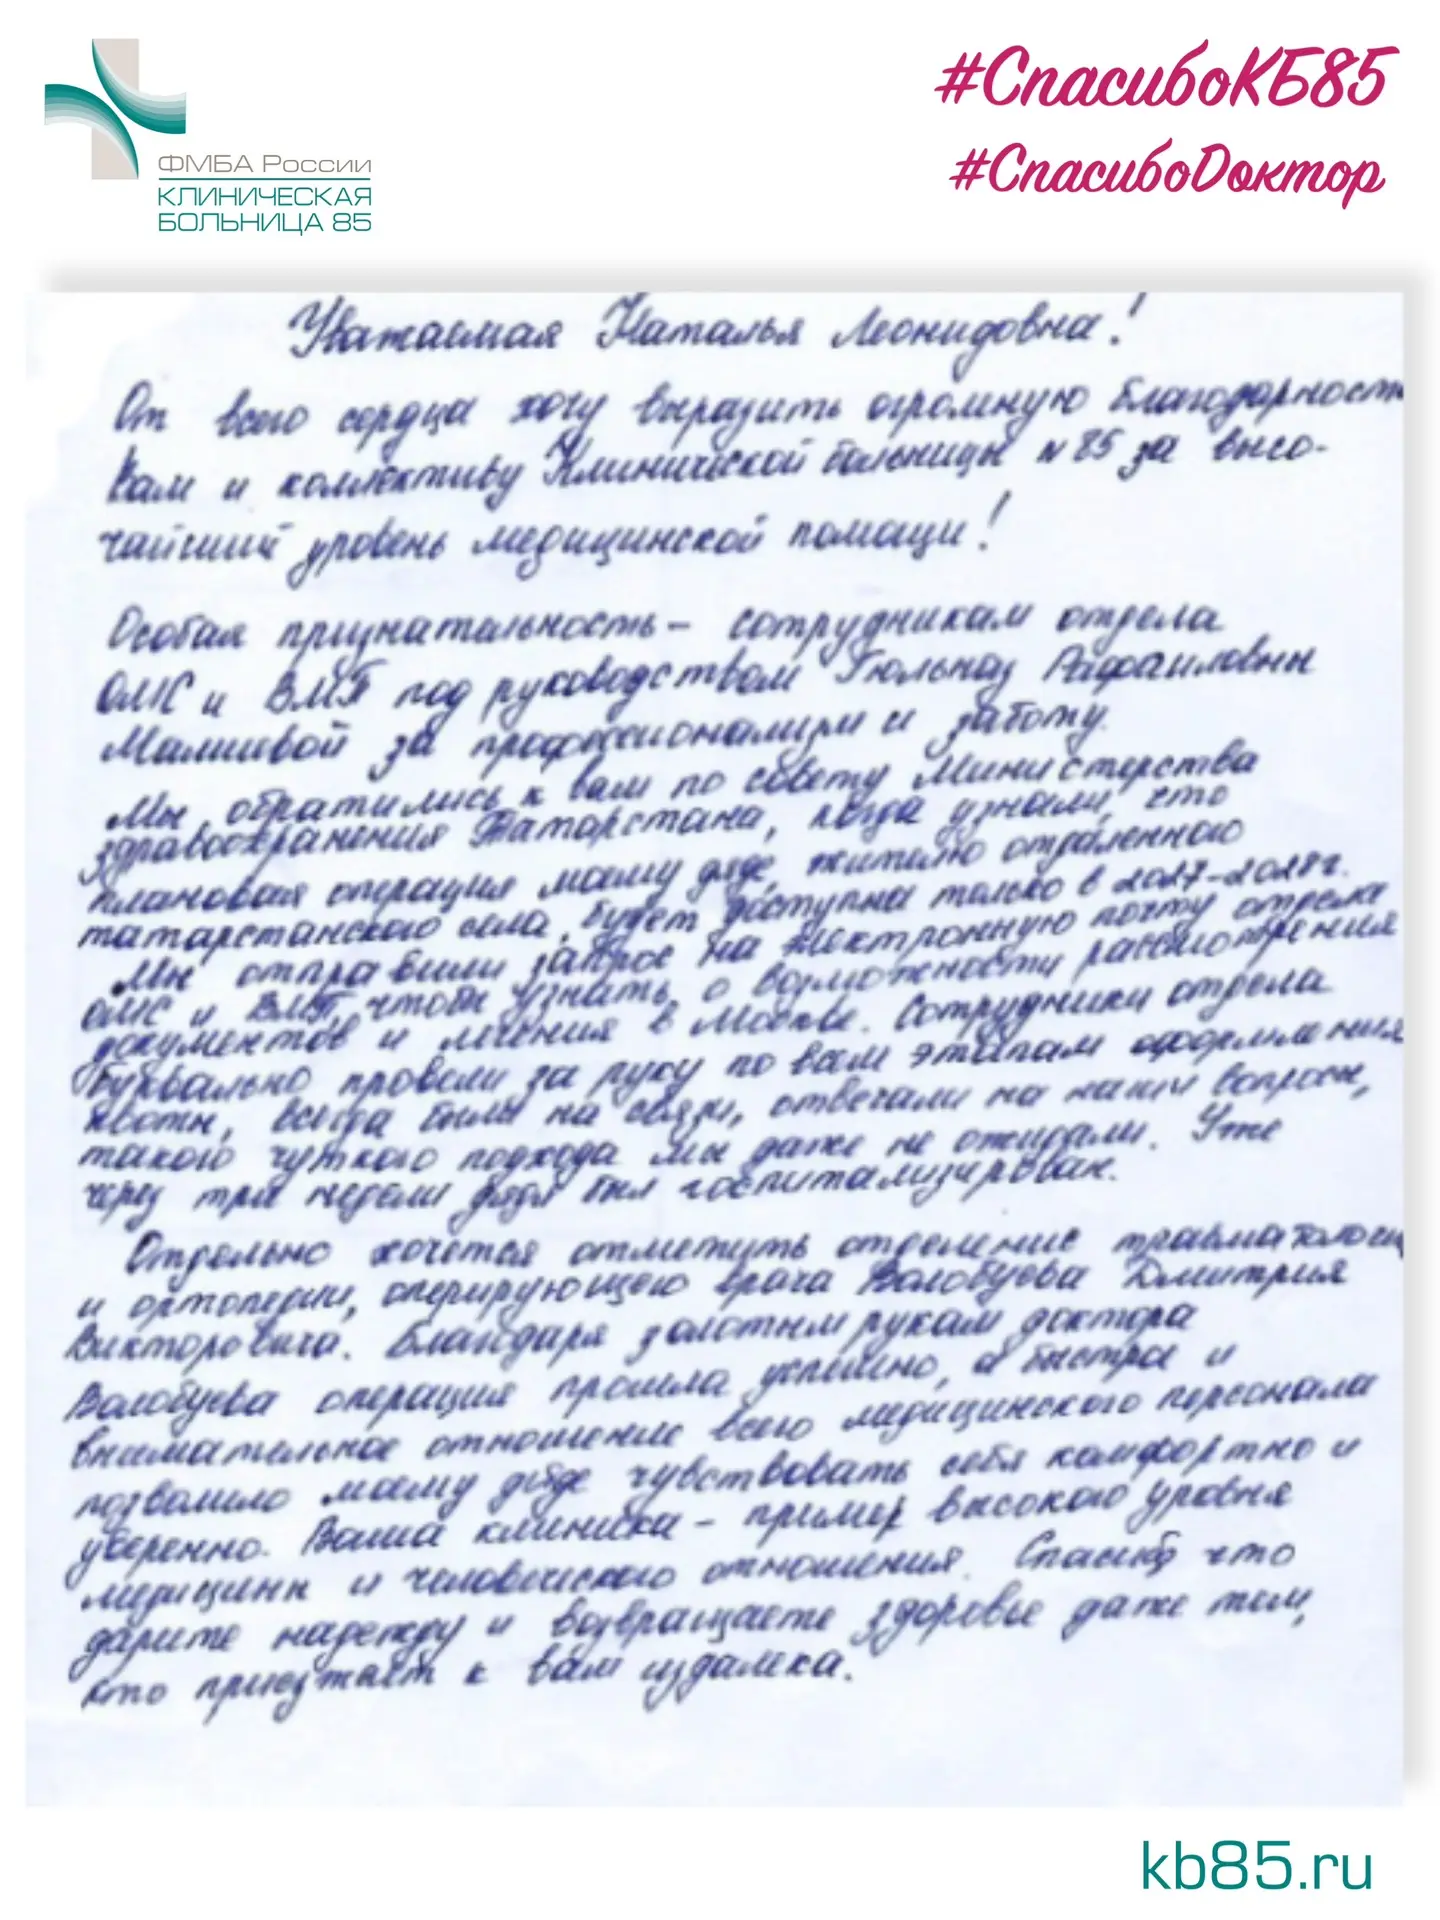 ФМБА России
КЛИНИЧЕСКАЯ
БОЛЬНИЦА 85
#СпасибоКБ85
#СпасибоДоктор
Уважаемая Наталья Леонидовна!
От всего сердца хочу выразить огромную благодарность
Вам и коллективу Клинической больницы №85 за высо-
чайший уровень медицинской помощи!
Особая признательность – сотрудникам отдела
ОМС и ВМП под руководством Гюльназ Рафаиловны
за профессионализм и заботу.
Мы обратились к вам по совету Министерства
здравоохранения Татарстана, когда узнали, что
плановая операция моему дяде, жителю отдаленного
татарстанского села, будет доступна только в 2027-2028г.
Мы отправили запрос на электронную почту отдела
ОМС и ВМП, чтобы узнать о возможности рассмотрения
документов и лечения в Москве. Сотрудники отдела
буквально провели за руку по всем этапам оформления
квоты, всегда были на связи, отвечали на наши вопросы,
такого чуткого подхода мы даже не ожидали. Уже
через три недели дядя был госпитализирован.
Отдельно хочется отметить отделение травматологии
и ортопедии, оперирующего врача Волобуева Дмитрия
Викторовича. Благодаря золотым рукам доктора
Волобуева операция прошла успешно, а быстрое и
внимательное отношение всего медицинского персонала
позволило моему дяде чувствовать себя комфортно и
уверенно. Ваша клиника – пример высокого уровня
медицины и человеческого отношения. Спасибо что
дарите надежду и возвращаете здоровье даже тем,
кто приезжает к вам издалека.
kb85.ru